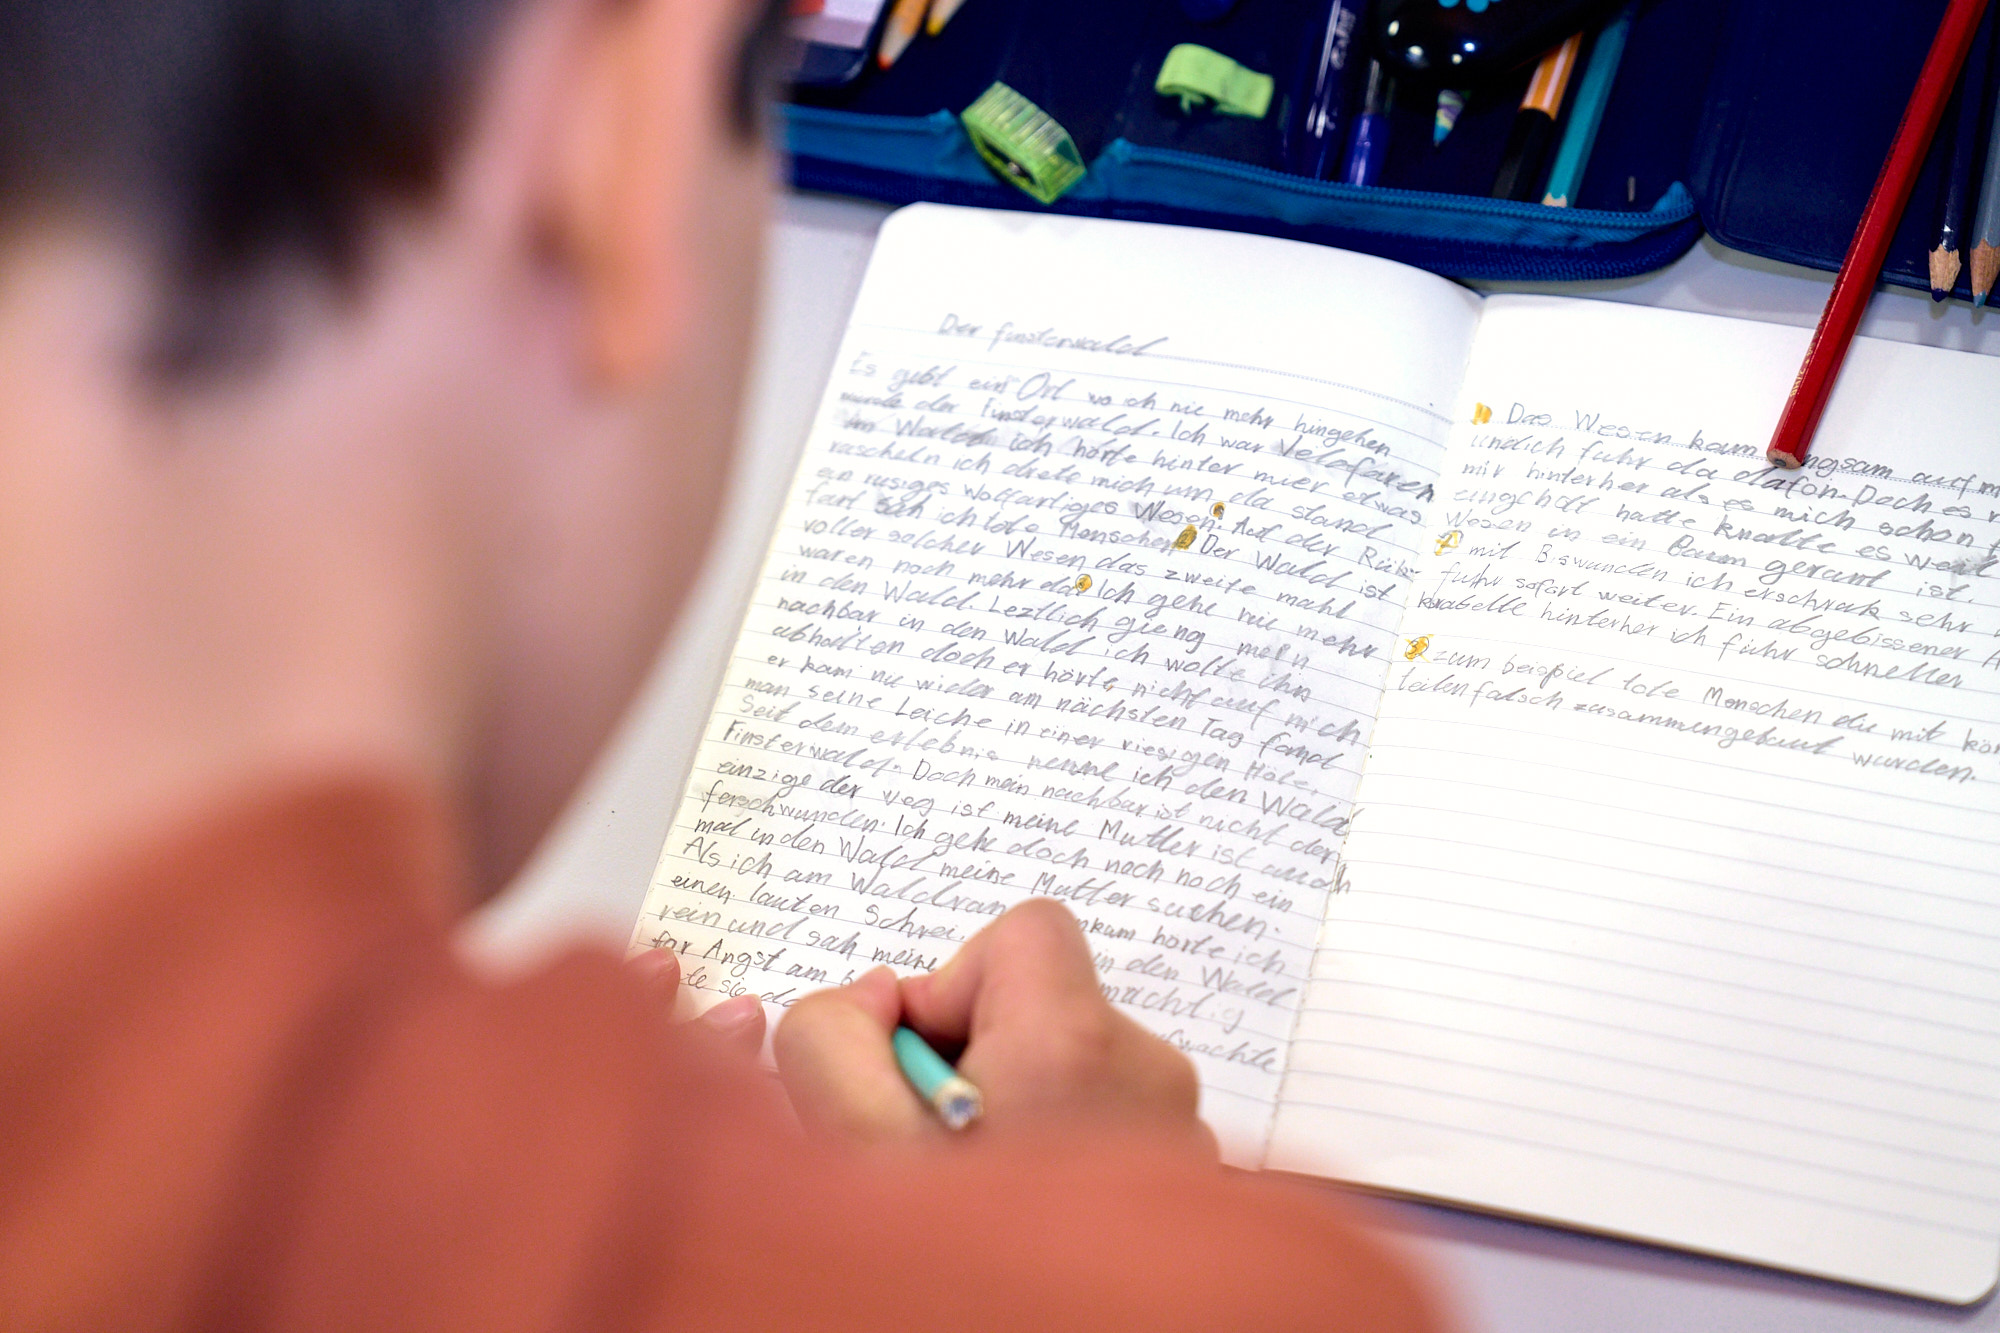 Der finsterwald
Es gibt ein Ort wo ich nie mehr hingehen
wurde der Finsterwald. Ich war Velofaren
im Wald ich hörte hinter mier etwas
rascheln ich drete mich um da stand
ein rusiges Wolfartiges Wesen. Auf der Rück-
fart sah ich tote Menschen Der Wald ist
voller solcher Wesen das zweite mahl
waren noch mehr da Ich gehe nie mehr
in den Wald. Leztlich gieng mein
nachbar in den Wald ich wolte ihn
abhalten doch er hörte nicht auf mich
er kam nie wider am nächsten Tag fand
man seine Leiche in einer riesigen Höle.
Seit dem erlebnis nenne ich den Wald
Finsterwald. Doch mein nachbar ist nicht der
einzige der weg ist meine Mutter ist auch
ferschwunden. Ich gehe doch noch noch ein
mal in den Wald meine Mutter suchen.
Als ich am Waldran nkam hörte ich
einen lauten Schrei. in den Wald
rein und sah meine mächtig
for Angst am b
te sie da wachte
1 Das Wesen kam ngsam auf m
und ich fuhr da dafon. Doch es
mir hinterher als es mich schon
eingeholt hatte knalte es weil
Wesen in ein Baum gerant ist.
2 mit Biswunden ich erschrak sehr
fuhr sofart weiter. Ein abgebissener A
krabelte hinterher ich fuhr schneller
3 zum beispiel tote Menschen die mit kör
teilen falsch zusammengebaut wurden.